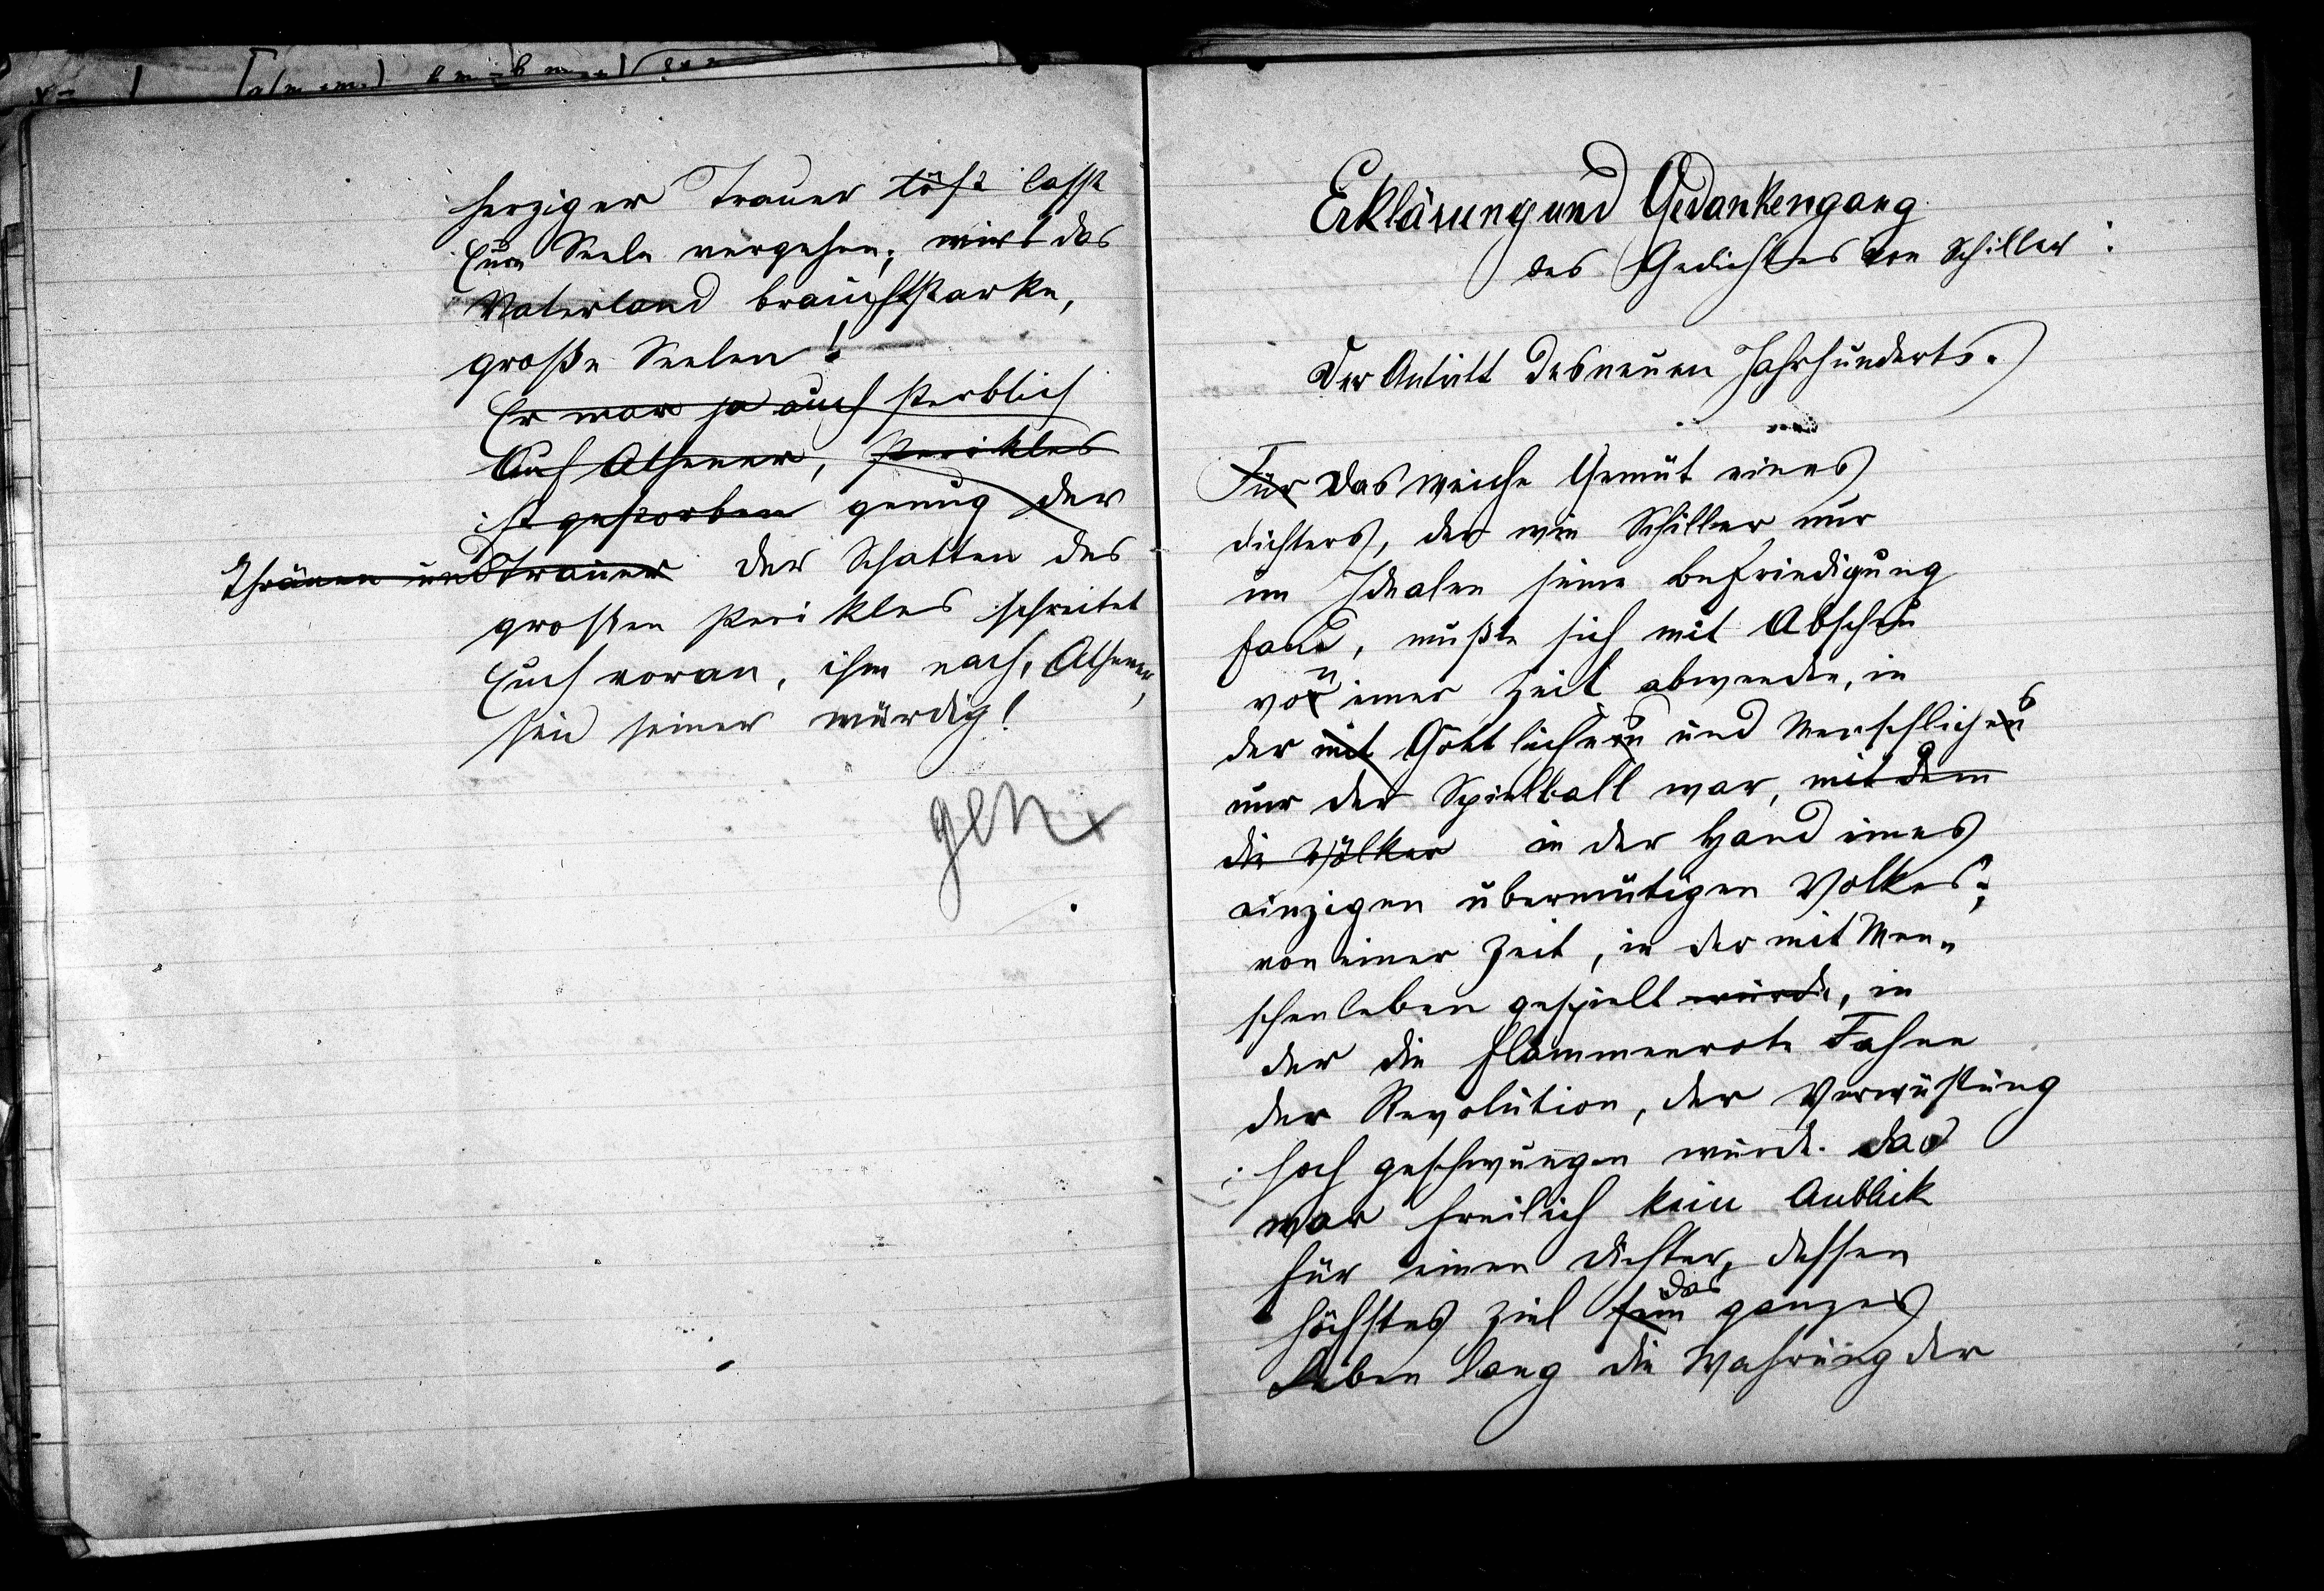 herziger Trauer löst lasst
Eure Seele vergehen; das
Vaterland braucht starke,
große Seelen!
Er war ja auch sterblich
Auf Athener, Perikles
ist gestorben genug der
Thränen und Trauer der Schatten des
großen Perikles schreitet
Euch voran, ihm nach, Athener,
seid seiner würdig!
gen
Erklärung und Gedankengang
des Gedichtes von Schiller:
Der Antritt des neuen Jahrhunderts.
Für Das weiche Gemüt eines
Dichters, der wie Schiller nur
im Idealen seine Befriedigung
fand, mußte sich mit Abscheu
von einer Zeit abwenden, in
der mit Göttliches und Menschliches
nur der Spielball war, mit dem
die Völker in der Hand eines
einzigen übermütigen Volkes;
von einer Zeit, in der mit Men„
schenleben gespielt wurde, in
der die flammenrote Fahne
der Revolution, der Verwüstung
hoch geschwungen wurde. Das
war freilich kein Anblick
für einen Dichter, dessen
höchstes Ziel sein das ganzes
Leben lang die Wahrung der